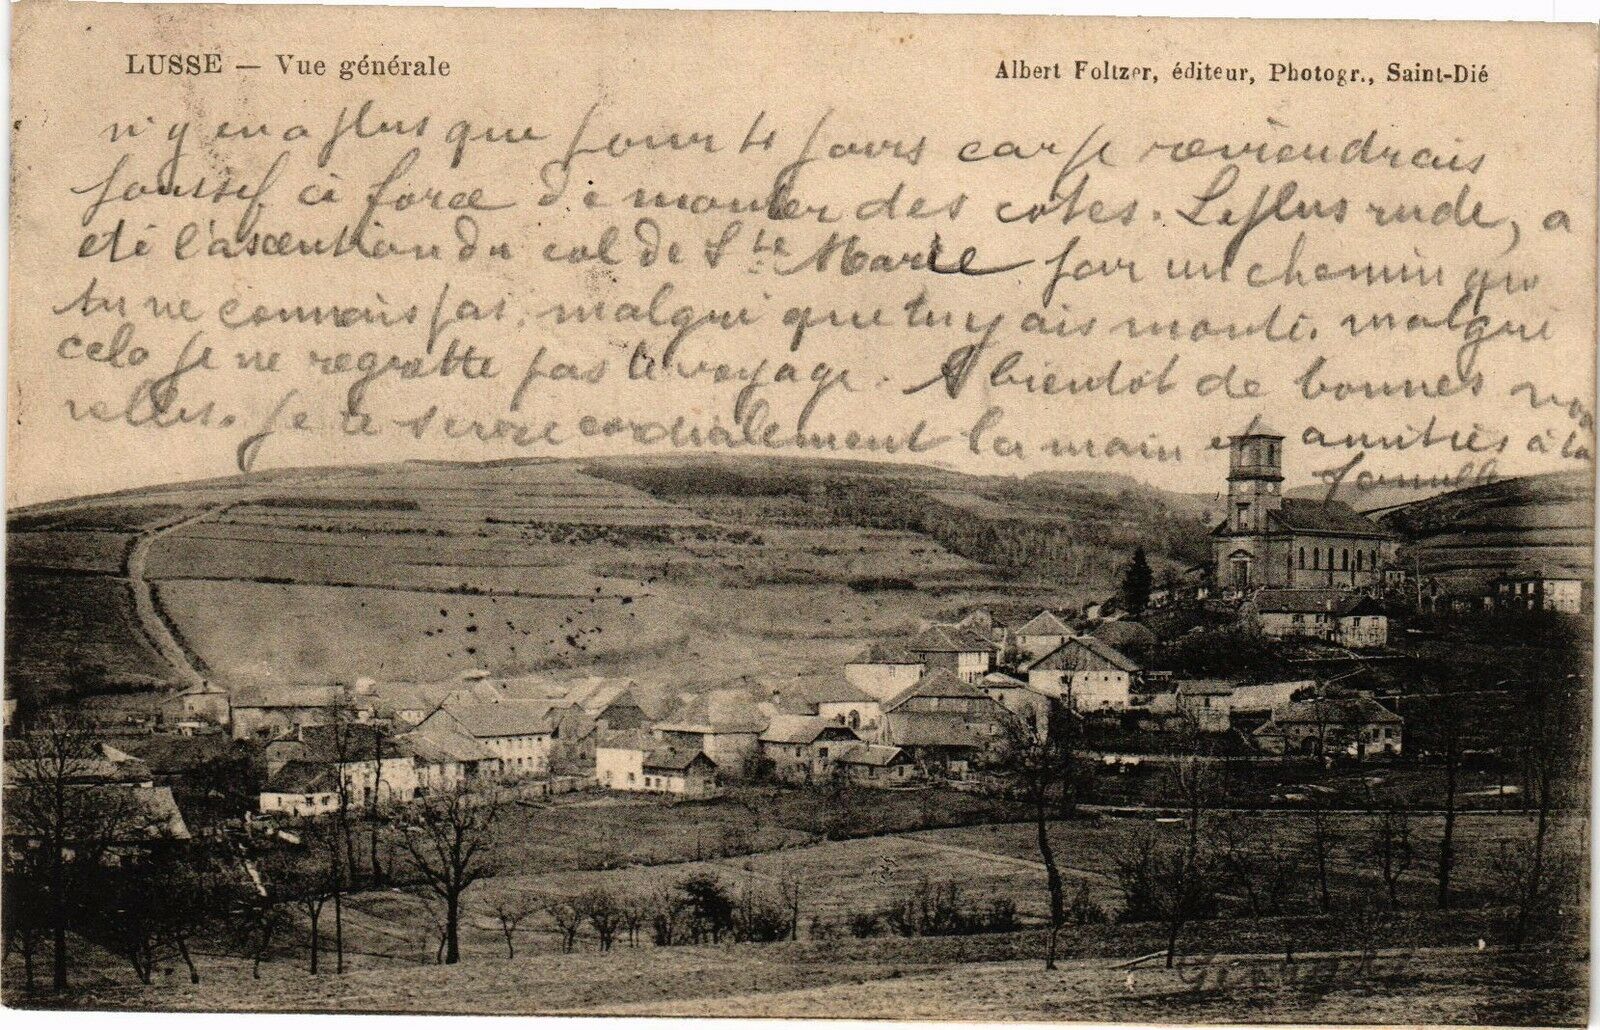 LUSSE — Vue générale
Albert Foltzer, éditeur, Photogr., Saint-Dié
n'y en a plus que pour 4 jours car je reviendrais
poussif à force de monter des côtes. Le plus rude, a
été l'ascention du col de Ste Marie par un chemin que
tu ne connais pas, malgré que tu y ais monté. malgré
cela je ne regrette pas le voyage. A bientôt de bonnes nou
velles. Je te serre cordialement la main et amitiés à la
famille